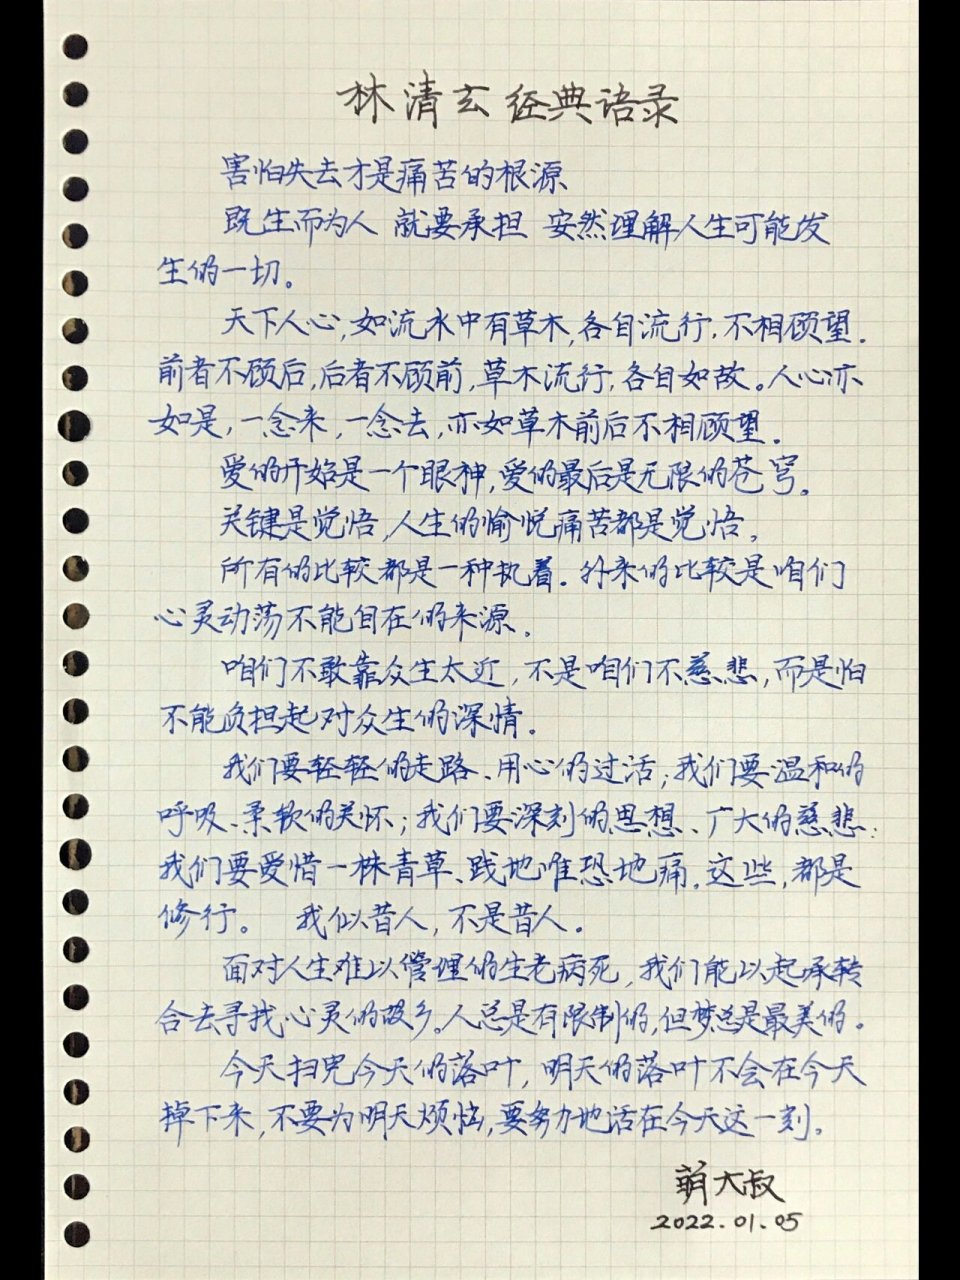 林清玄经典语录
害怕失去才是痛苦的根源
既生而为人 就要承担 安然理解人生可能发
生的一切。
天下人心,如流水中有草木,各自流行,不相顾望.
前者不顾后,后者不顾前,草木流行,各自如故。人心亦
如是,一念来,一念去,亦如草木前后不相顾望.
爱的开始是一个眼神,爱的最后是无限的苍穹。
关键是觉悟,人生的愉悦痛苦都是觉悟。
所有的比较都是一种执着.外来的比较是咱们
心灵动荡不能自在的来源.
咱们不敢靠众生太近,不是咱们不慈悲,而是怕
不能负担起对众生的深情.
我们要轻轻的走路、用心的过活;我们要温和的
呼吸、柔软的关怀;我们要深刻的思想、广大的慈悲;
我们要爱惜一株青草、践地唯恐地痛,这些,都是
修行。 我似昔人,不是昔人.
面对人生难以管理的生老病死,我们能以起承转
合去寻找心灵的故乡。人总是有限制的,但梦总是最美的.
今天扫完今天的落叶,明天的落叶不会在今天
掉下来,不要为明天烦恼,要努力地活在今天这一刻.
萌大叔
2022.01.05